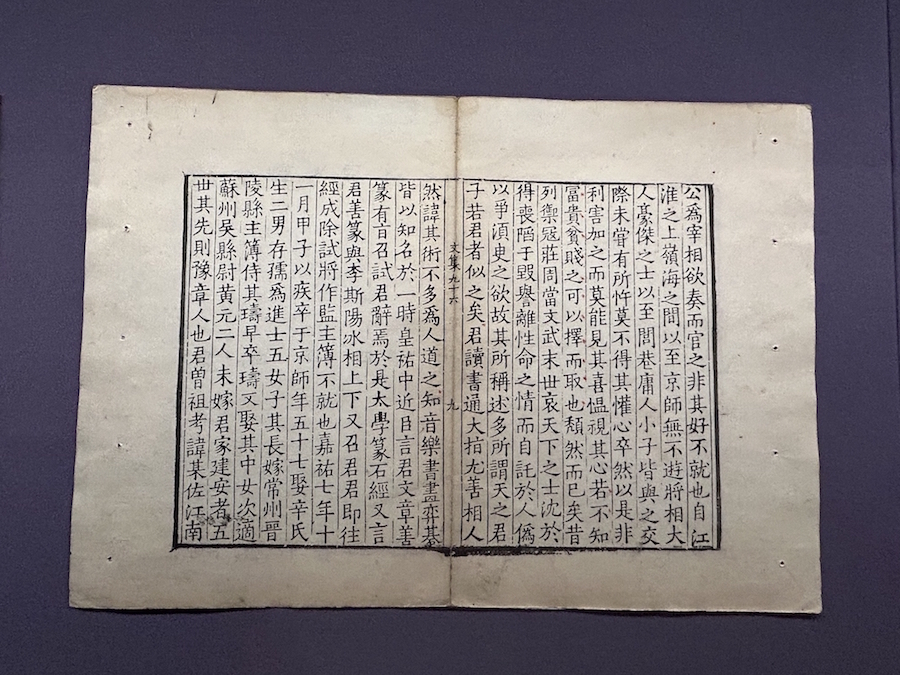 公爲宰相欲奏而官之非其好不就也自江
淮之上嶺海之間以至京師無不遊將相大
人豪傑之士以至閭巷庸人小子皆與之交
際未甞有所忤莫不得其懽心卒然以是非
利害加之而莫能見其喜愠視其心若不知
富貴貧賤之可以擇而取也頹然而已矣昔
列禦冦莊周當文武末世哀天下之士沈於
得喪陷于毀譽離性命之情而自託於人僞
以爭湏臾之欲故其所稱述多所謂天之君
子若君者似之矣君讀書通大指尤善相人
文集九十六 九
然諱其術不多爲人道之知音樂書畫弈棊
皆以知名於一時皇祐中近臣言君文章善
篆有旨召試君辭焉於是太學篆石經又言
君善篆與李斯陽冰相上下又召君君即往
經成除試將作監主簿不就也嘉祐七年十
一月甲子以疾卒于京師年五十七娶辛氏
生二男存孺爲進士五女子其長嫁常州晉
陵縣主簿侍其璹早卒璹又娶其中女次適
蘇州吳縣尉黃元二人未嫁君家建安者五
世其先則豫章人也君曽祖考諱某佐江南